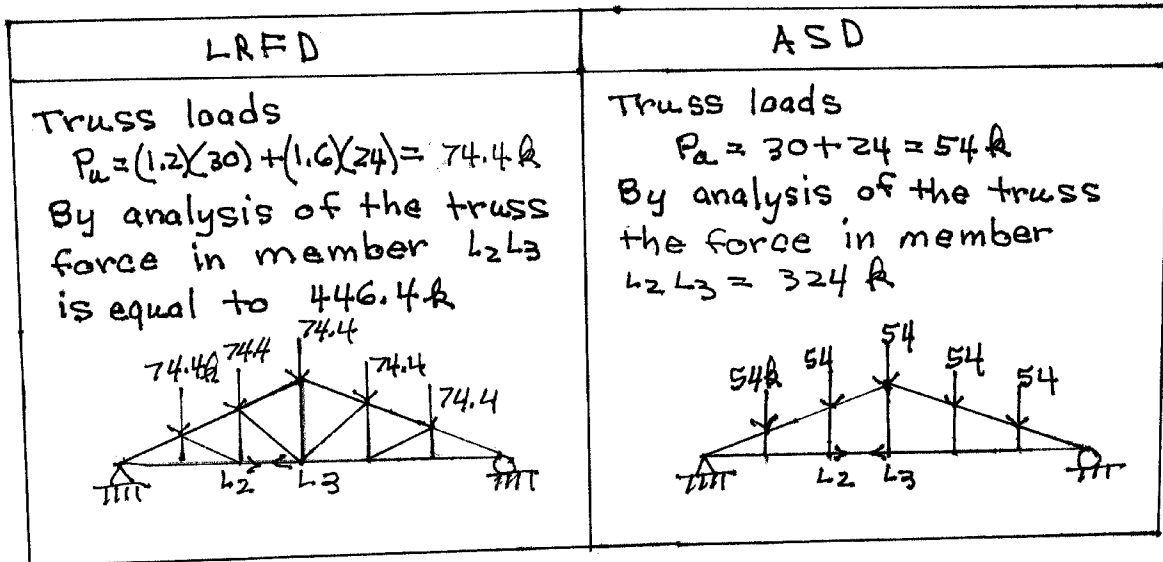 LRFD
Truss loads
Pu = (1.2)(30) + (1.6)(24) = 74.4 k
By analysis of the truss
force in member L2L3
is equal to 446.4 k
74.4
74.4k 74.4
74.4
74.4
L2 L3
ASD
Truss loads
Pa = 30 + 24 = 54 k
By analysis of the truss
the force in member
L2 L3 = 324 k
54
54k 54 54 54
L2 L3